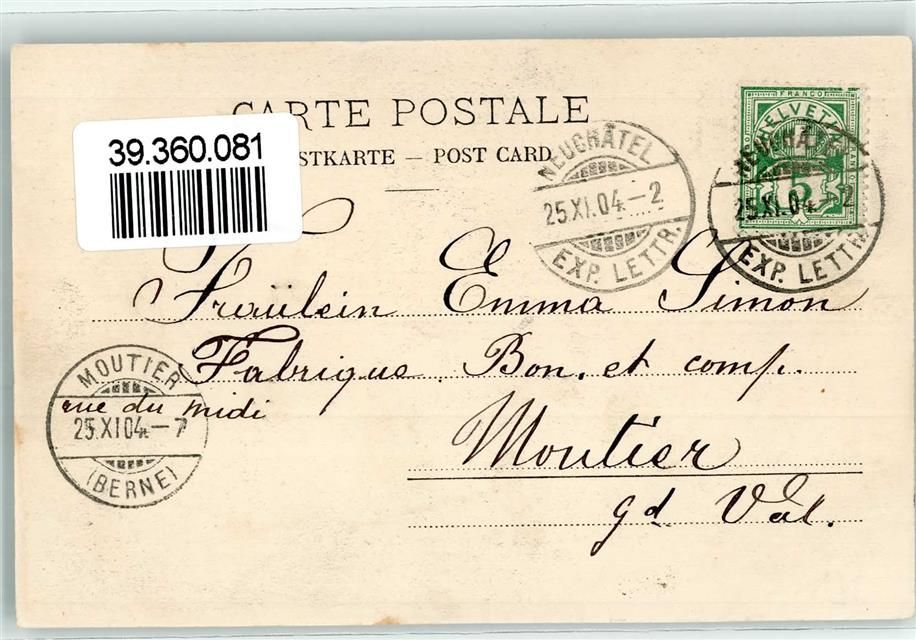 CARTE POSTALE
39.360.081
STKARTE — POST CARD
FRANCO
HELVET
5
NEUCHÂTEL
25.XI.04.–2
EXP. LETTR.
NEUCHÂTEL
25.XI.04.–2
EXP. LETTR.
Fraülein Emma Simon
Fabrique Bon. et comp.
rue du midi
MOUTIER
25.XI.04.–7
(BERNE)
Moutier
gd Val.